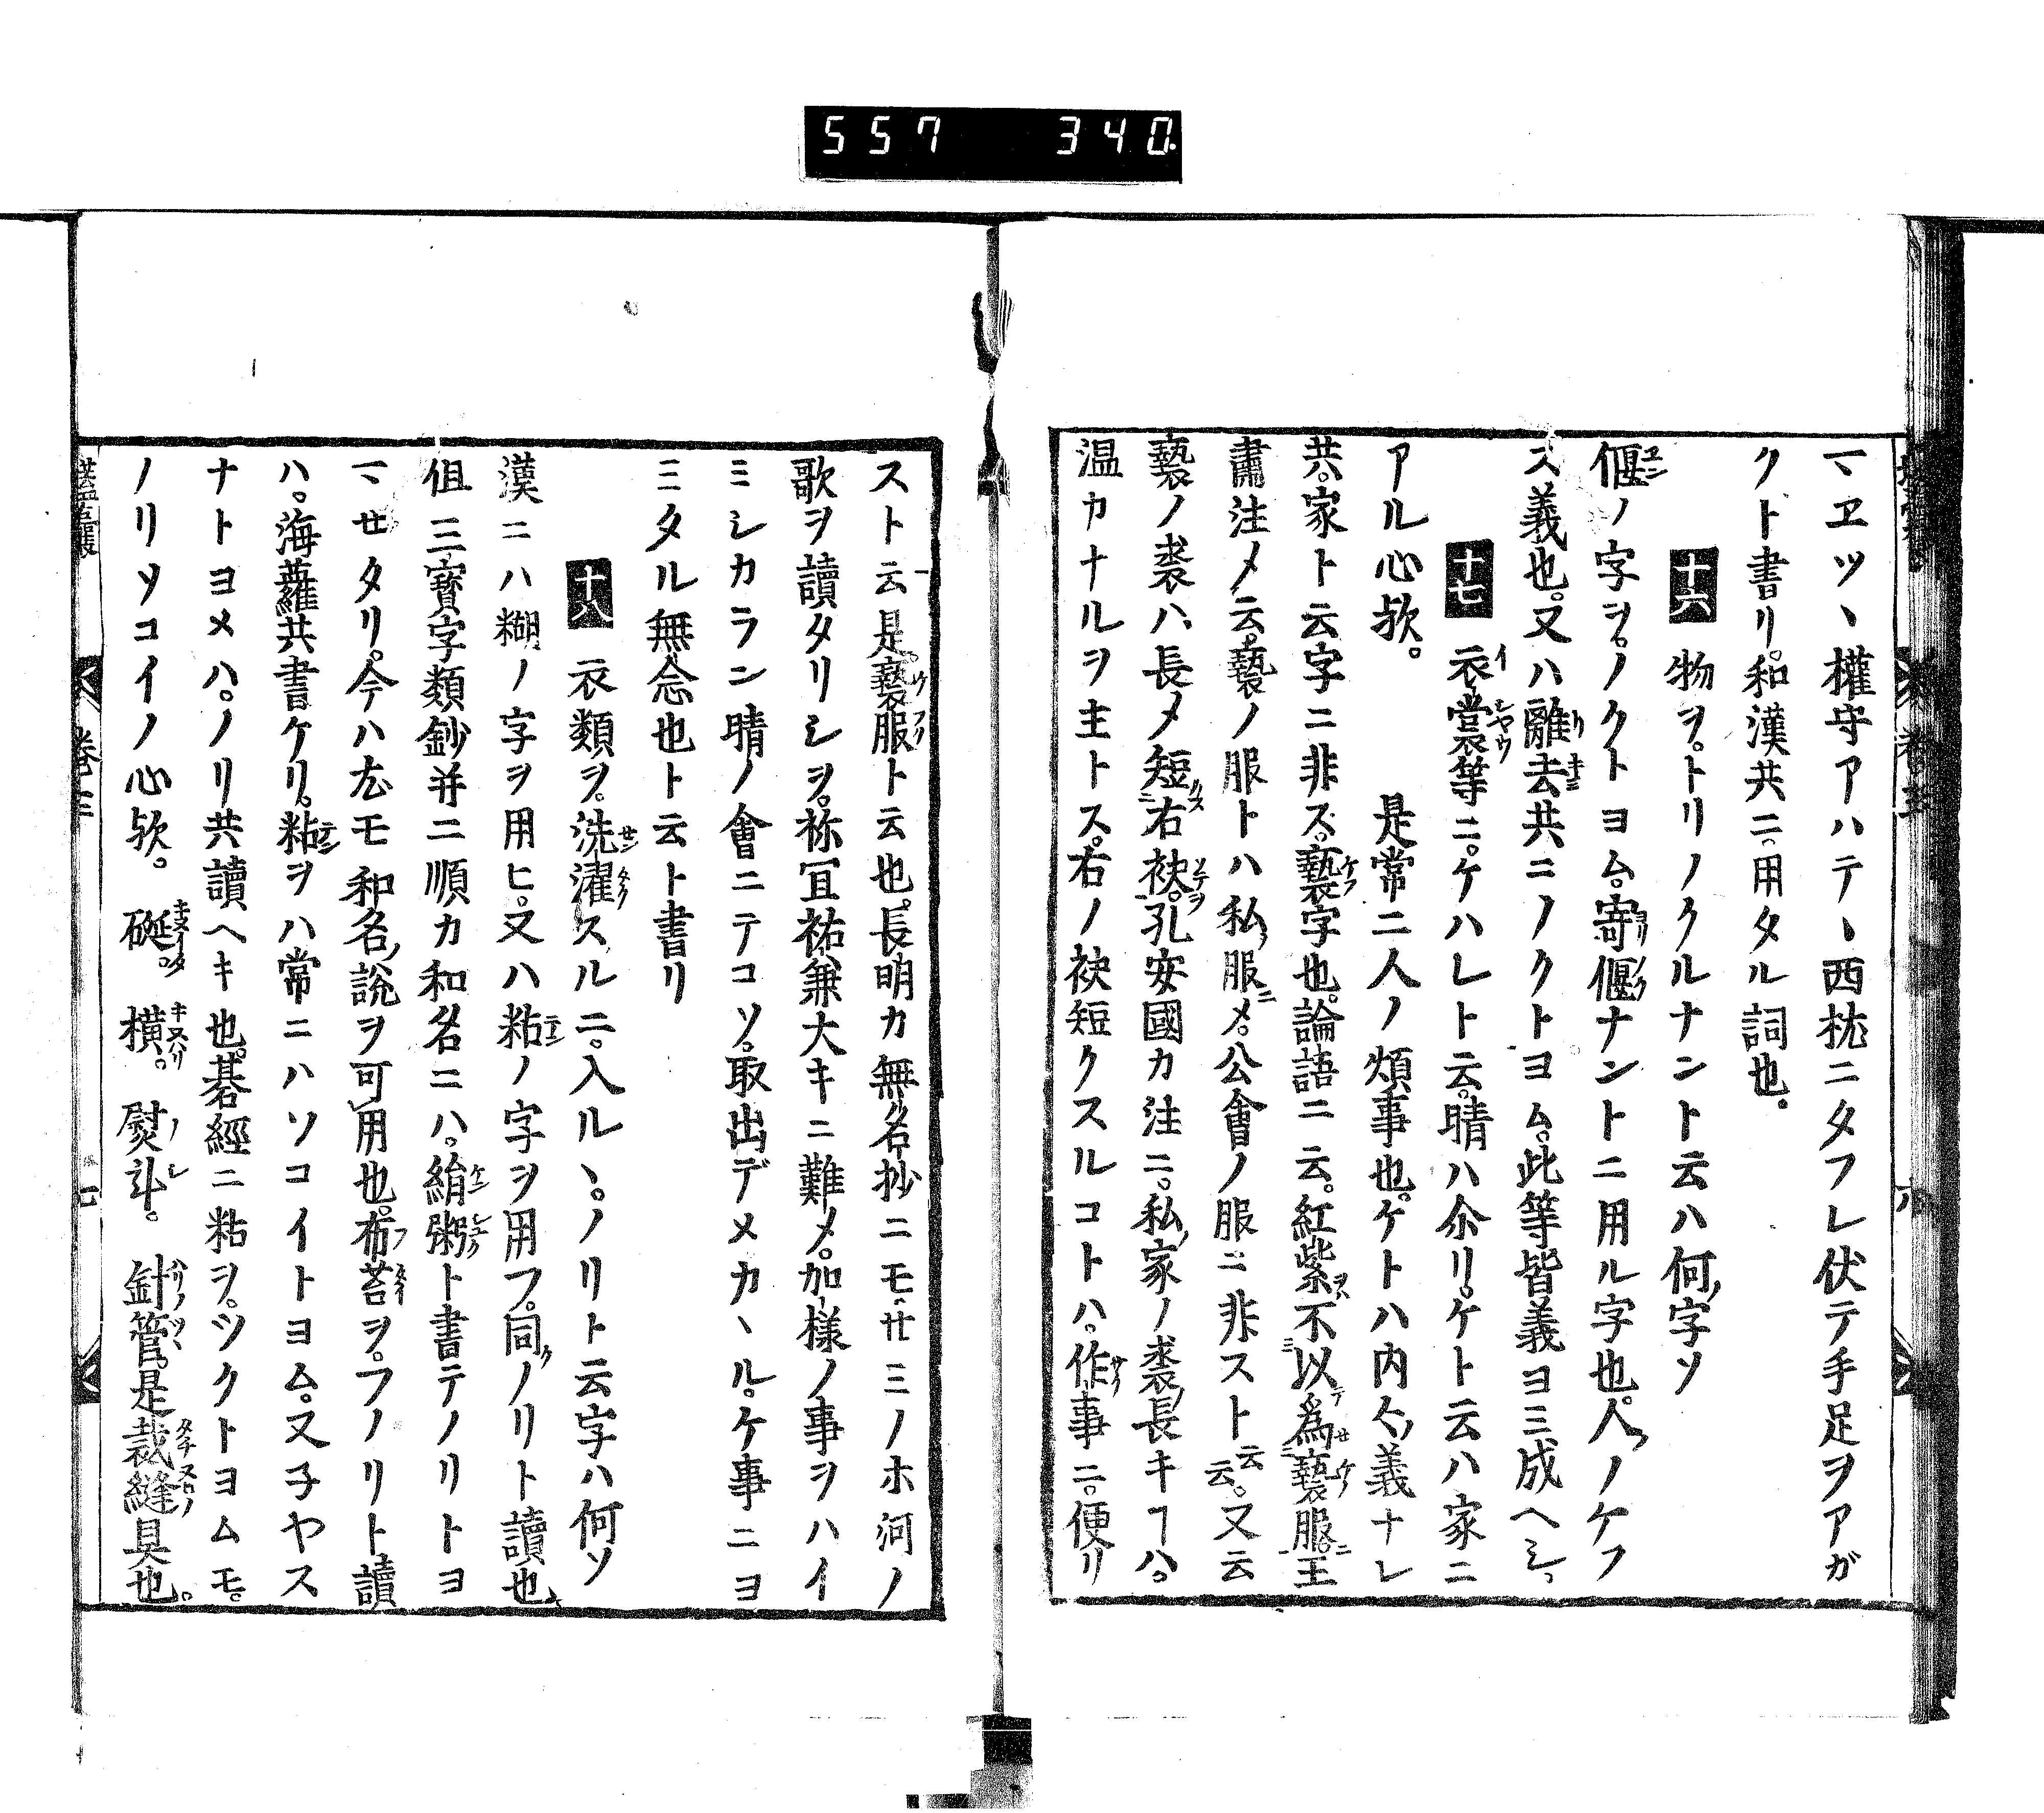 557 340.
マヱツヽ權守アハテヽ西枕ニタフレ伏テ手足ヲアガ
クト書リ。和漢共ニ用タル詞也。
十六 物ヲ。トリノクルナント云ハ何ノ字ソ
偃ノ字ヲ。ノクトヨム。寄偃ナントニ用ル字也。人ノノケフ
ス義也。又ハ離去共ニノクトヨム。此等皆義ヨミ成ヘシ
十七 衣裳等ニ。ケハレト云。晴ハ尒リ。ケト云ハ家ニ
アル心欤。 是常ニ人ノ煩事也。ゲトハ内々ノ義ナレ
共。家ト云字ニ非ス。褻字也。論語ニ云。紅紫不以爲褻服。王
肅注メ云。褻ノ服トハ私ノ服メ。公會ノ服ニ非スト云云。又云
褻ノ裘ハ長メ短右袂。孔安國カ注ニ。私家ノ裘ノ長キヿハ。
温カナルヲ主トス。右ノ袂短クスルコトハ。作事ニ。便リ
ストー云是。褻服ト云也。長明カ無名抄ニモ。廿ミノホ河ノ
歌ヲ讀タリシヲ。祢冝祐兼大キニ難メ。加様ノ事ヲハイ
ミシカラン晴ノ會ニテコソ。取出デメカヽル。ケ事ニヨ
ミタル無念也ト云ト書リ
十八 衣類ヲ。洗濯スルニ。入ルヽ。ノリト云字ハ何ソ
漢ニハ糊ノ字ヲ用ヒ。又ハ粘ノ字ヲ用フ。同クノリト讀也
但三寳字類鈔并ニ順カ和名ニハ。絹粥ト書テノリトヨ
マセタリ。今ハ尤モ和名ノ説ヲ可用也。布苔ヲ。フノリト讀
ハ。海蘿共書ケリ。粘ヲハ常ニハソコイトヨム。又子ヤス
ナトヨメハ。ノリ共讀ヘキ也。碁經ニ粘ヲ。ツクトヨムモ。
ノリソコイノ心欤。 碾。 横。 熨斗。 針管。是裁縫具也。
卷三
七